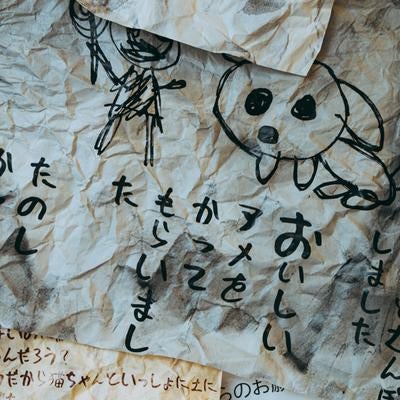 さんぽ
しました
おいしい
アメを
かって
もらいまし
た
たのし
か
んだろう？
だから猫ちゃんといっしょに土に
らのお